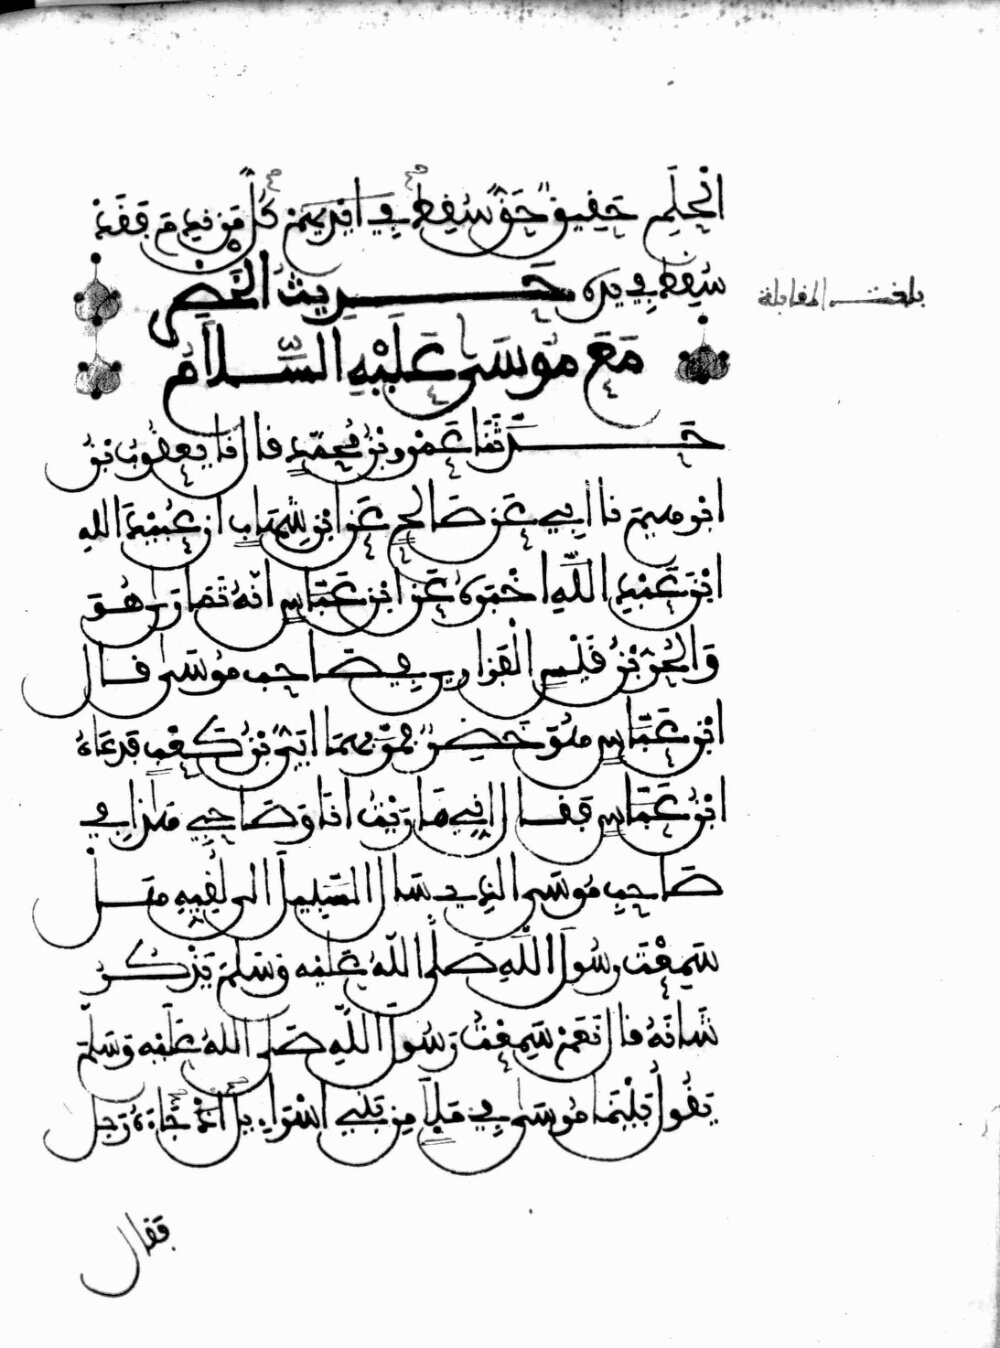 الحليم حقيق حق سقط في ايديهم كل من ندم فقد
سقط في يده حديث الخضر
بلغت المقابلة
مع موسى عليه السلام
حدثنا عمرو بن محمد قال نا يعقوب بن
ابرهيم نا ابي عن صالح عن ابن شهاب ان عبيد الله
ابن عبد الله اخبره عن ابن عباس انه تمارى هو
والحر بن قيس الفزاري في صاحب موسى قال
ابن عباس هو خضر فمر بهما ابي بن كعب فدعاه
ابن عباس فقال اني تماريت انا وصاحبي هذا في
صاحب موسى الذي سال السبيل الى لقيه هل
سمعت رسول الله صلى الله عليه وسلم يذكر
شانه قال نعم سمعت رسول الله صلى الله عليه وسلم
يقول بينما موسى في ملا من بني اسراءيل اذ جاءه رجل
فقال